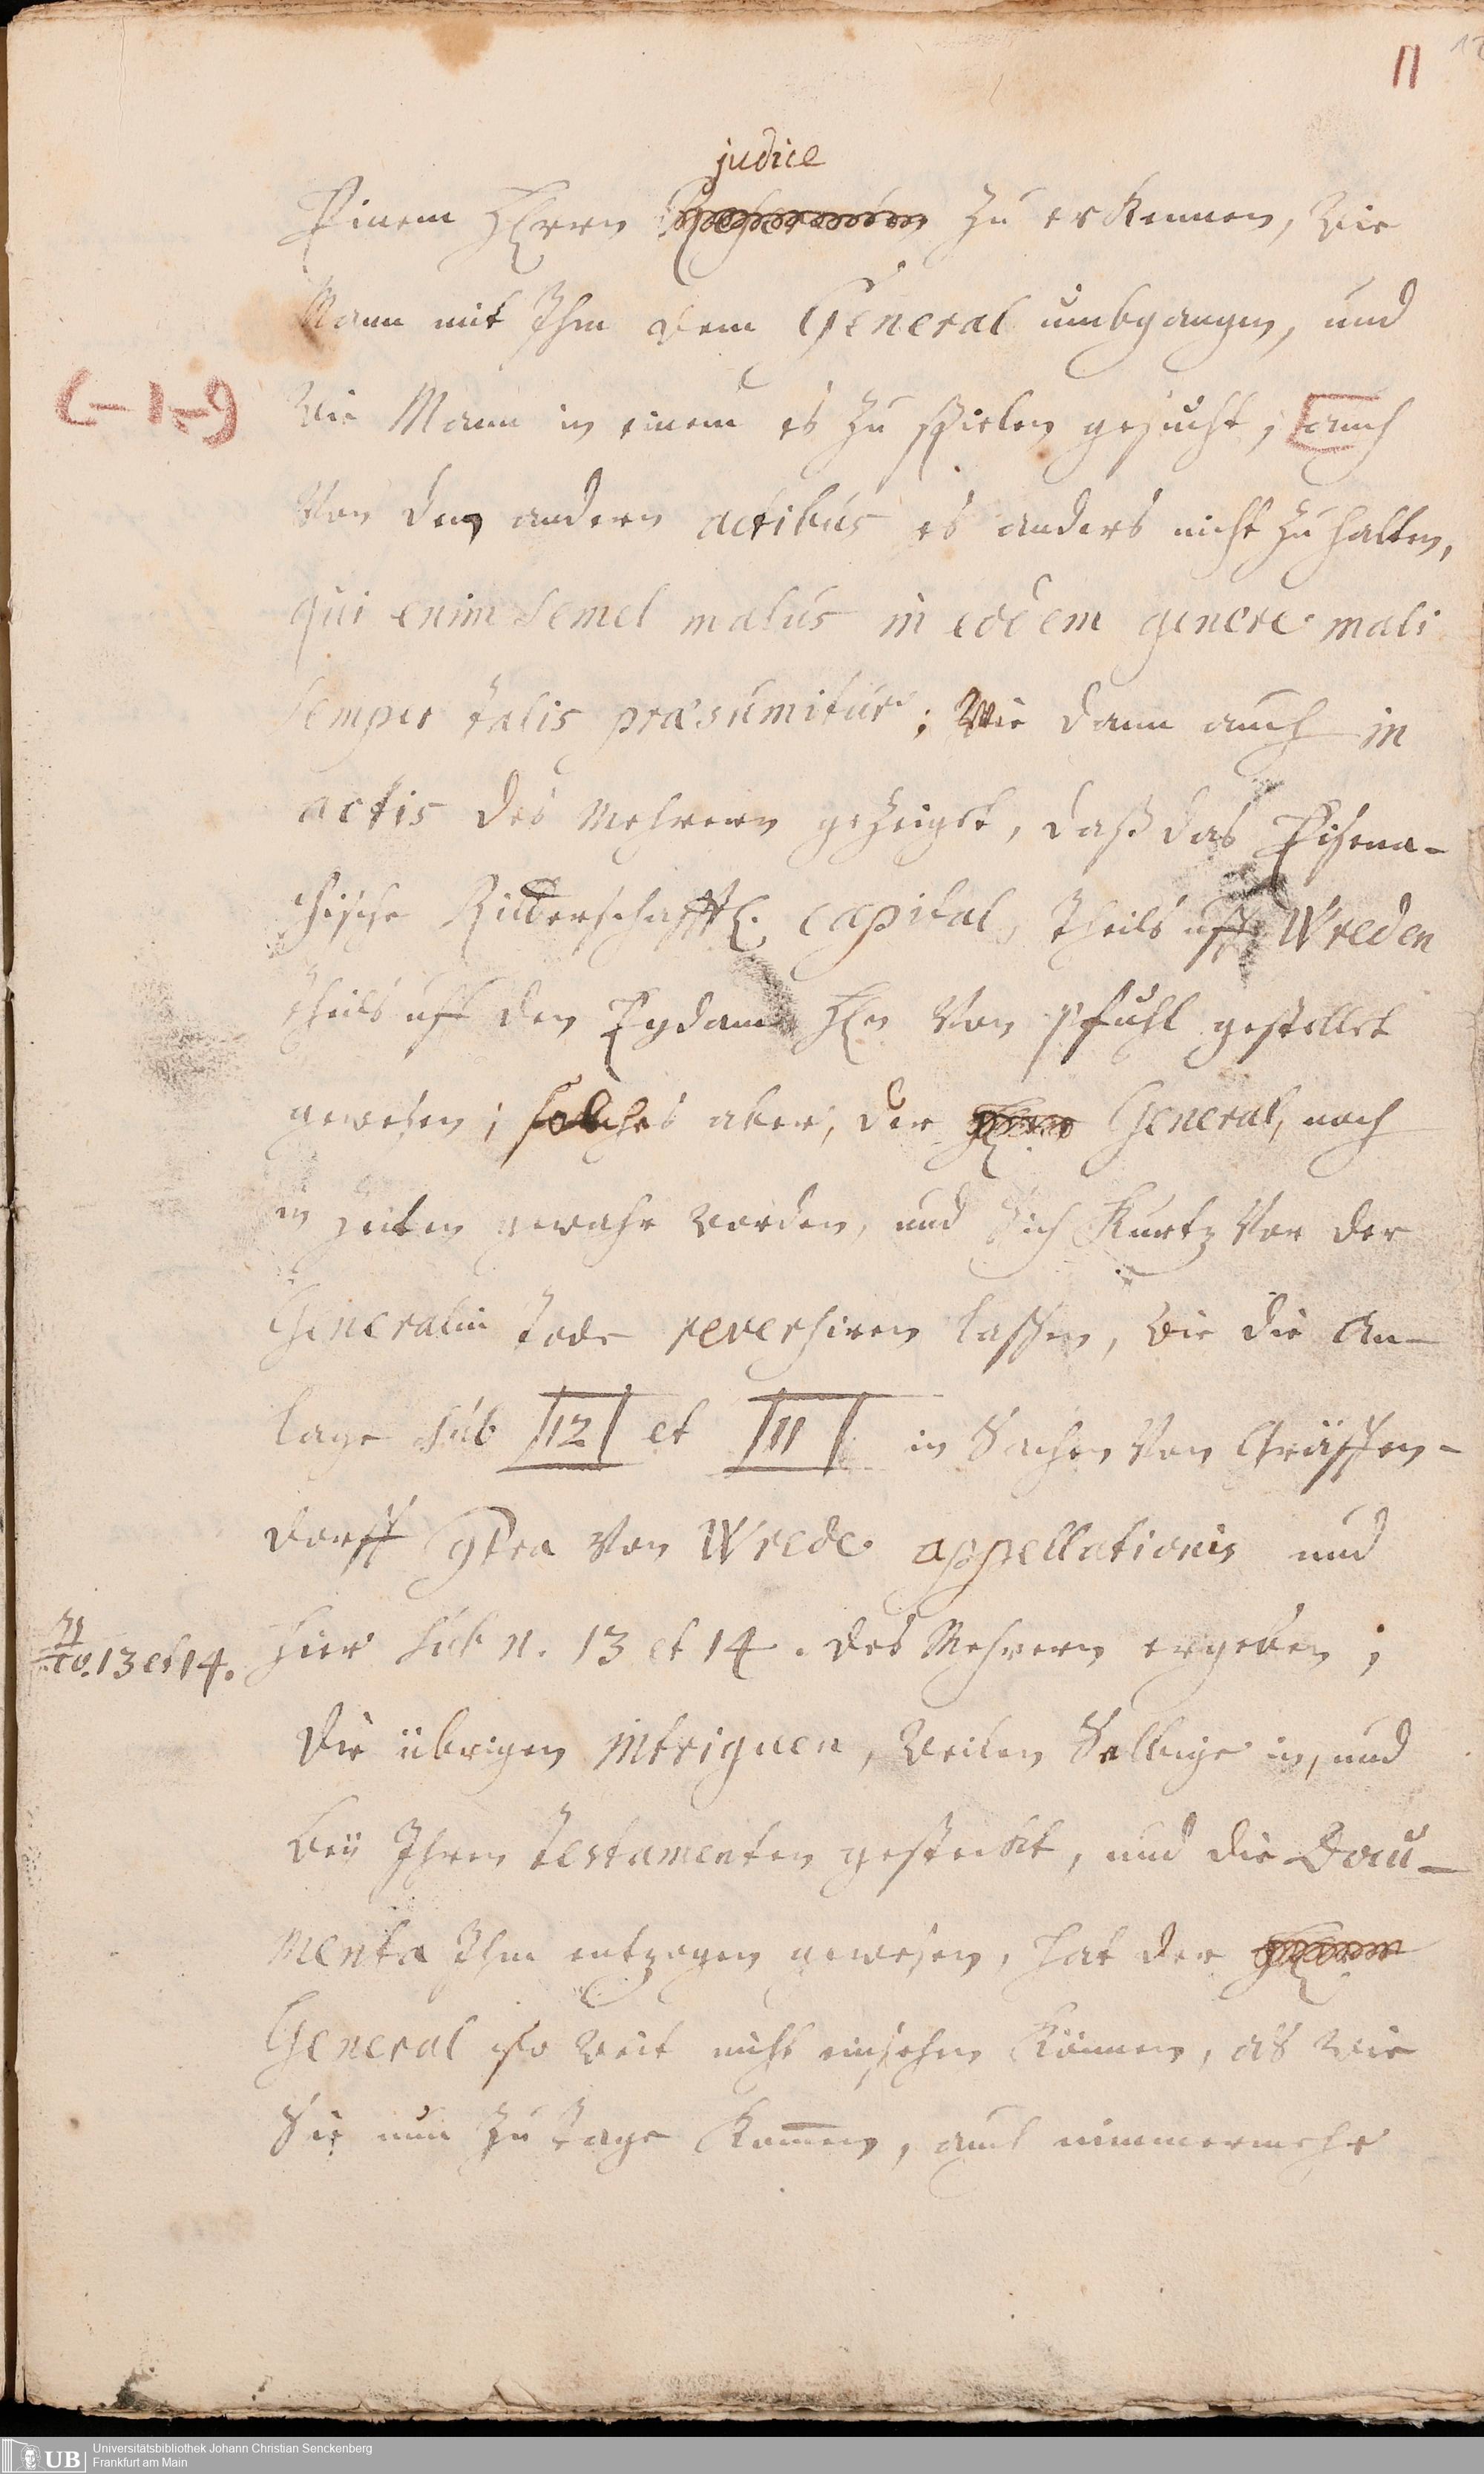 11
judice
Einem HErrn zu erkennen, wie
Mann mit Ihm dem General umbgangen, und
wie Mann in einem es zu spielen gesucht, auch
(-1-9)
von den andern actibus es anders nicht zu halten,
qui enim semel malus in eodem genere mali
semper talis præsumitur; wie dann auch in
actis des Mehrern gezeiget, daß das Eisena-
chische Ritterschafftl. capital, theils uff Wreden
theils uff den Eydam HEn von Pfuhl gestellet
gewesen; solches aber, der General, noch
in zeiten gewahr worden, und Sich Kurtz vor der
Generalin Tode reversiren lassen, wie die An-
lage sub 12 et 11 in Sachen von Gräffen-
dorff contra von Wrede appellationis und
hier sub n. 13 et 14. des Mehrern ergeben;
No. 13 et 14.
Die übrigen intriguen, weilen Selbige in, und
bey Ihren Testamenten gesteckt, und die Docu-
menta Ihm entzogen gewesen, hat der
General so weit nicht einsehen Können, als wie
Sie nun zu Tage Komen, auch nimmermehr
UB
Universitätsbibliothek Johann Christian Senckenberg
Frankfurt am Main